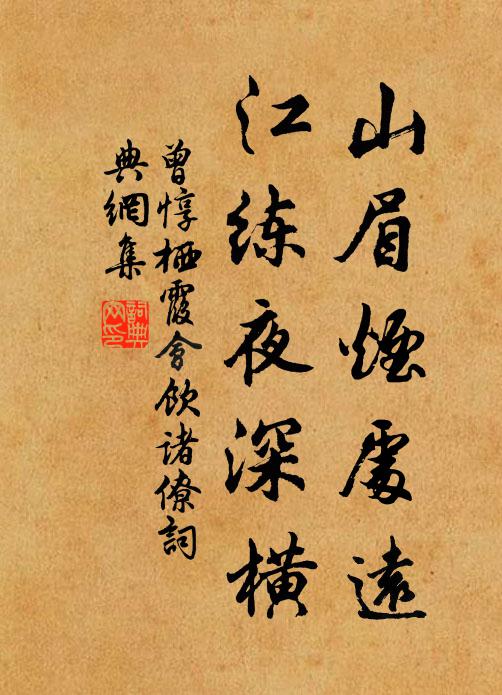 山眉煙處遠
江练夜深橫
曾惇栖霞會飲諸僚詞
典網集
詞典网印